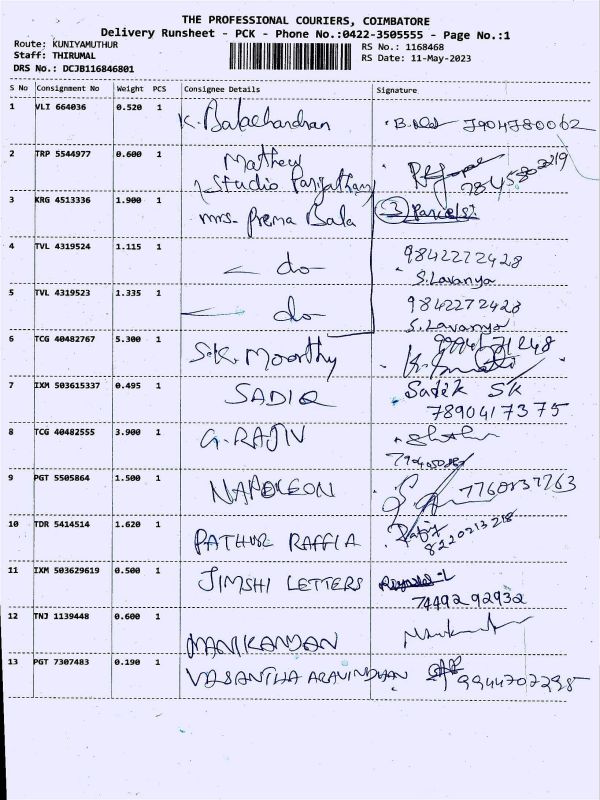 THE PROFESSIONAL COURIERS, COIMBATORE
Delivery Runsheet - PCK - Phone No.:0422-3505555 - Page No.:1
Route: KUNIYAMUTHUR
RS No.: 1168468
Staff: THIRUMAL
RS Date: 11-May-2023
DRS No.: DCJB116846801
S No Consignment No Weight PCS Consignee Details Signature
1 VLI 664036 0.520 1 K. Balachandran 7904780062
2 TRP 5544977 0.600 1 Mathew
Studio
3 KRG 4513336 1.900 1 Mrs. Prema Bala 3 Parcels
4 TVL 4319524 1.115 1 do 9842272428
S. Lavanya
5 TVL 4319523 1.335 1 do 9842272428
S. Lavanya
6 TCG 40482767 5.300 1 S.K. Moorthy
7 IXM 503615337 0.495 1 SADIQ Sadik SK
7890417375
8 TCG 40482555 3.900 1 G. RAJIV
9 PGT 5505864 1.500 1 NAPOLEON
10 TDR 5414514 1.620 1 PATHUR RAFFIA
8220213218
11 IXM 503629619 0.500 1 JIMSHI LETTERS
74492 92932
12 TNJ 1139448 0.600 1 MANIKANDAN
13 PGT 7307483 0.190 1 VASANTHA ARAVINDHAN 9944707295